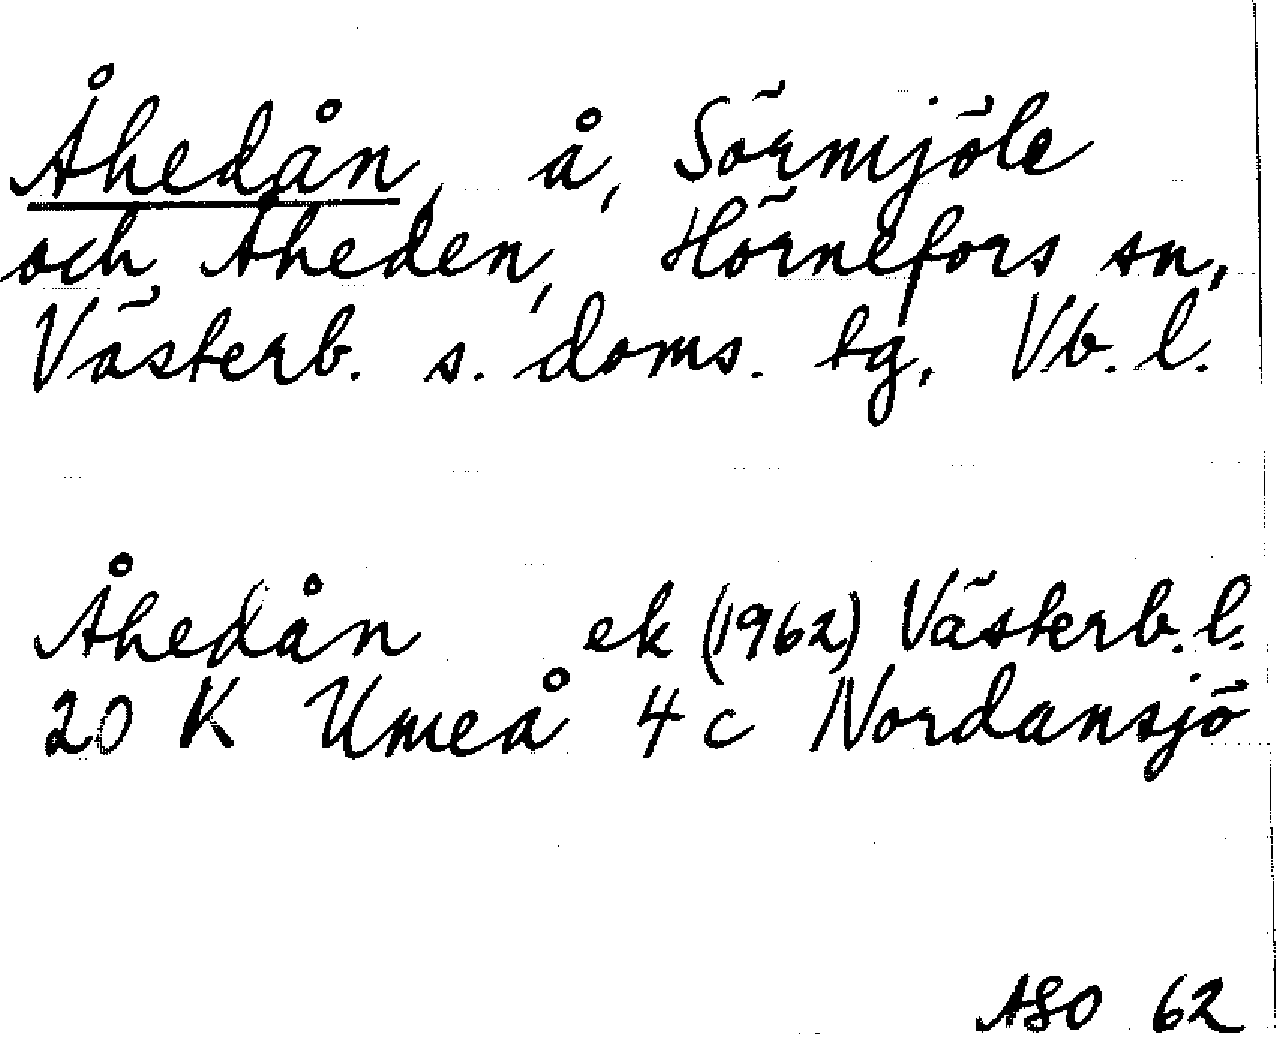 Åhedån, å, Sörmjöle
och Åheden, Hörnefors sn,
Västerb. s. doms. tg, Vb. l.
Åhedån ek (1962) Västerb. l.
20 K Umeå 4 c Nordansjö
ASO 62